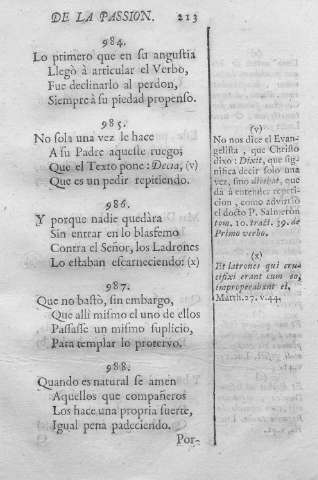 DE LA PASSION. 213
984.
Lo primero que en su angustia
Llegò à articular el Verbo,
Fue declinarlo al perdon,
Siempre à su piedad propenso.
985.
No sola una vez le hace
A su Padre aqueste ruego;
Que el Texto pone: Decia, (v)
Que es un pedir repitiendo.
986.
Y porque nadie quedàra
Sin entrar en lo blasfemo
Contra el Señor, los Ladrones
Lo estaban escarneciendo: (x)
987.
Que no bastò, sin embargo,
Que alli mismo el uno de ellos
Passasse un mismo suplicio,
Para templar lo protervo.
988.
Quando es natural se amen
Aquellos que compañeros
Los hace una propria suerte,
Igual pena padeciendo.
Por-
(v)
No nos dice el Evan-
gelista, que Christo
dixo: Dixit, que sig-
nifica decir solo una
vez, sino dicebat, que
dà à entender repeti-
cion, como advirtiò
el docto P. Salmeròn
tom. 10. tract. 39. de
Primo verbo.
(x)
Et latrones qui cru-
cifixi erant cum eo,
improperabant ei,
Matth. 27. v. 44.